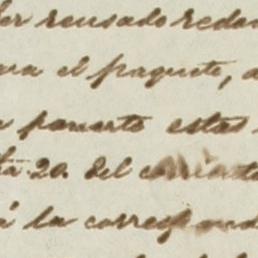 ler reusado redac
ra el paquete, a
ponerte estas
ta 20 del corriente
á la correspond